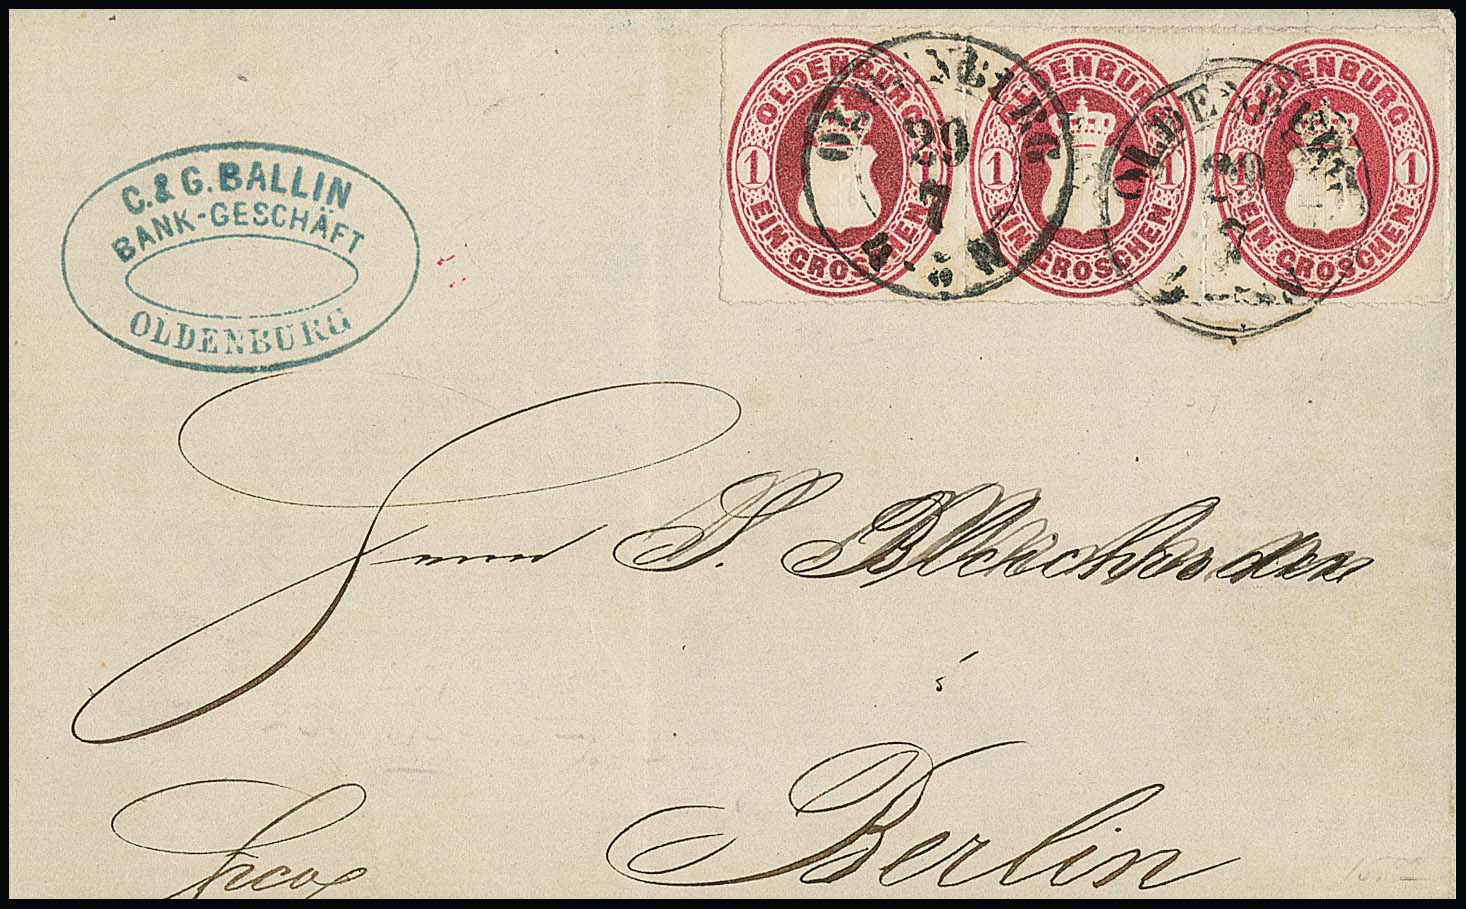 C. & G. BALLIN
BANK-GESCHÄFT
OLDENBURG
OLDENBURG
1 1
EIN GROSCHEN
OLDENBURG
1 1
EIN GROSCHEN
OLDENBURG
1 1
EIN GROSCHEN
OLDENBURG
29
7
N
OLDENBURG
29
Herrn S. Bleichröder
Berlin
frco